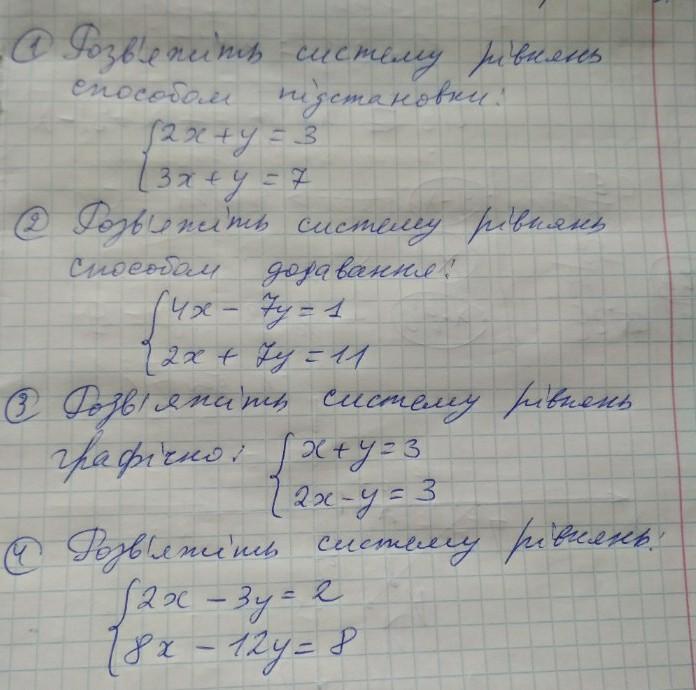 ① Розв'яжіть систему рівнянь
способом підстановки:
{2x+y=3
3x+y=7
② Розв'яжіть систему рівнянь
способом додавання:
{4x - 7y=1
2x + 7y=11
③ Розв'яжіть систему рівнянь
графічно: {x+y=3
2x-y=3
④ Розв'яжіть систему рівнянь:
{2x - 3y=2
8x - 12y=8